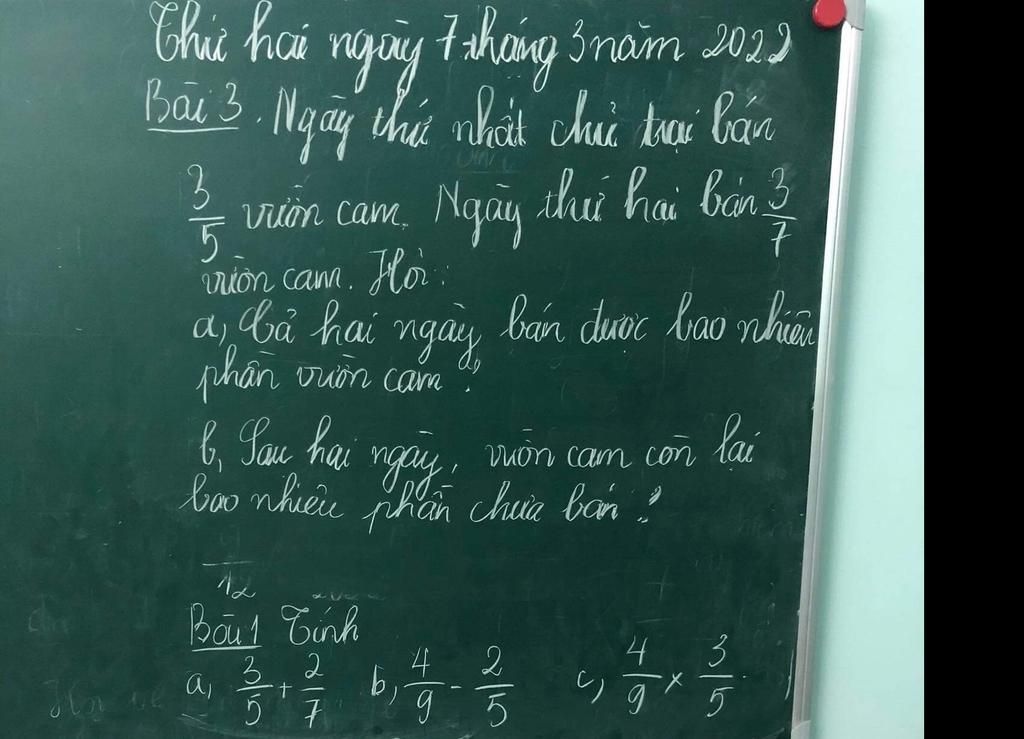 Thứ hai ngày 7 tháng 3 năm 2022
Bài 3. Ngày thứ nhất chủ trại bán
3/5 vườn cam. Ngày thứ hai bán 3/7
vườn cam. Hỏi:
a, Cả hai ngày bán được bao nhiêu
phần vườn cam?
b, Sau hai ngày, vườn cam còn lại
bao nhiêu phần chưa bán?
12
Bài 1 Tính
a, 3/5 + 2/7 b, 4/9 - 2/5 c, 4/9 × 3/5